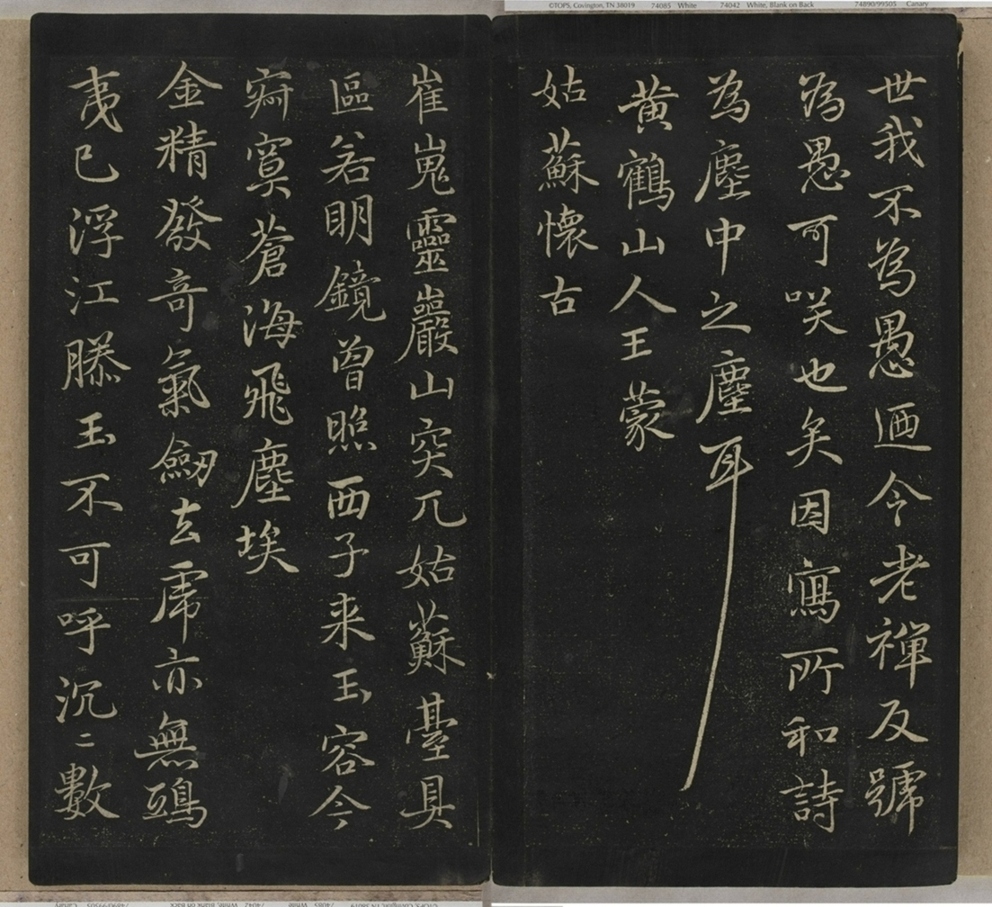 ©TOPS, Covington, TN 38019 74085 White 74042 White, Blank on Back 74890/99505 Canary
世我不為愚迺今老禪反號
為愚可咲也矣因寫所和詩
為塵中之塵耳
黃鶴山人王蒙
姑蘇懷古
崔嵬靈巖山突兀姑蘇臺具
區若明鏡曾照西子来玉容今
寂寞蒼海飛塵埃
金精發奇氣劔去虎亦無鴟
夷已浮江勝玉不可呼沉〻數